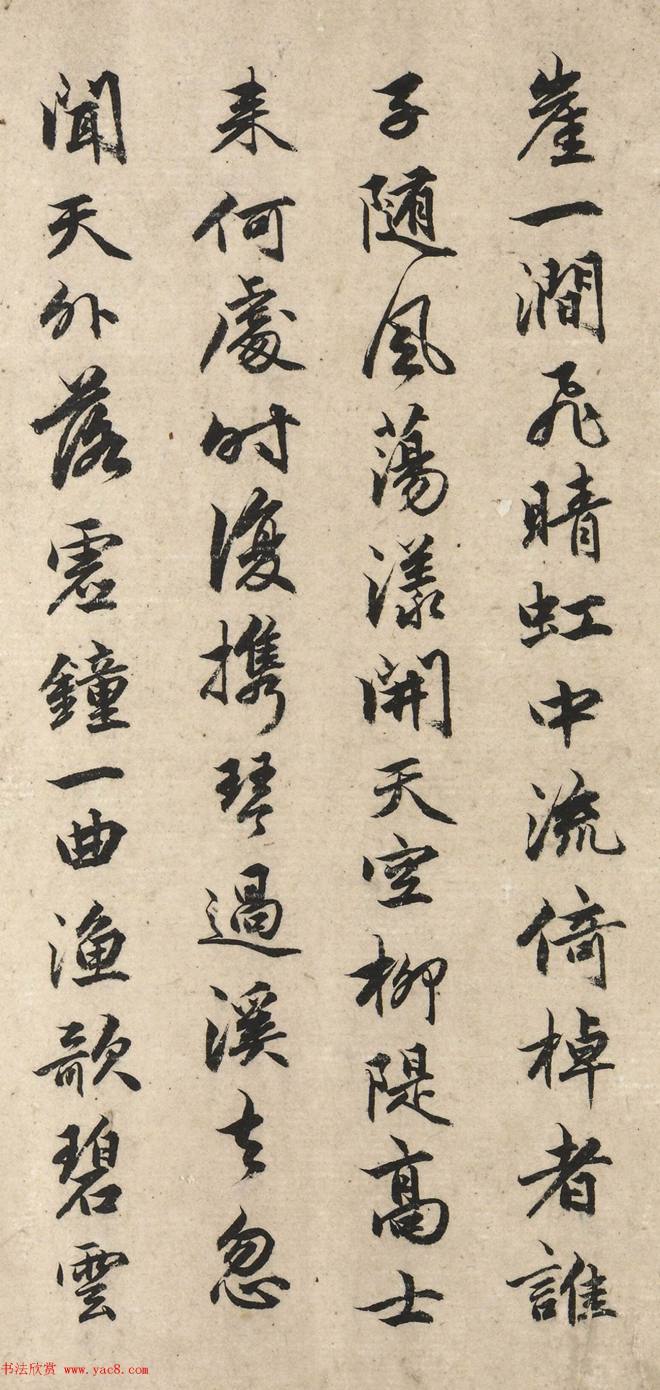 崖一澗飛晴虹中流倚棹者誰
子隨風蕩漾開天空柳隄高士
来何處時復攜琴過溪去忽
聞天外落雲鐘一曲漁歌碧雲
书法欣赏 www.yac8.com